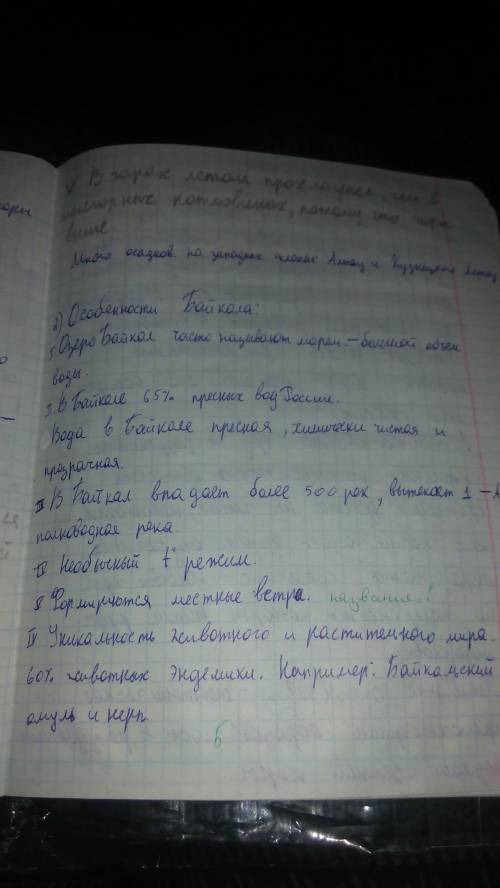 V В горах летом прохладнее, чем в
межгорных котловинах, потому что горы
выше
Много осадков. на западных склонах Алтая и Кузнецкого Алатау
2) Особенности Байкала:
I. Озеро Байкал часто называют морем. – большой объем
воды.
II. В Байкале 65% пресных вод России.
Вода в Байкале пресная, химически чистая и
прозрачная.
III В Байкал впадает более 500 рек, вытекает 1 – А
полноводная река.
IV Необычный t° режим.
V Формируются местные ветра. название!
IV Уникальность животного и растительного мира.
60% животных эндемики. Например: Байкальский
омуль и нерп.
5